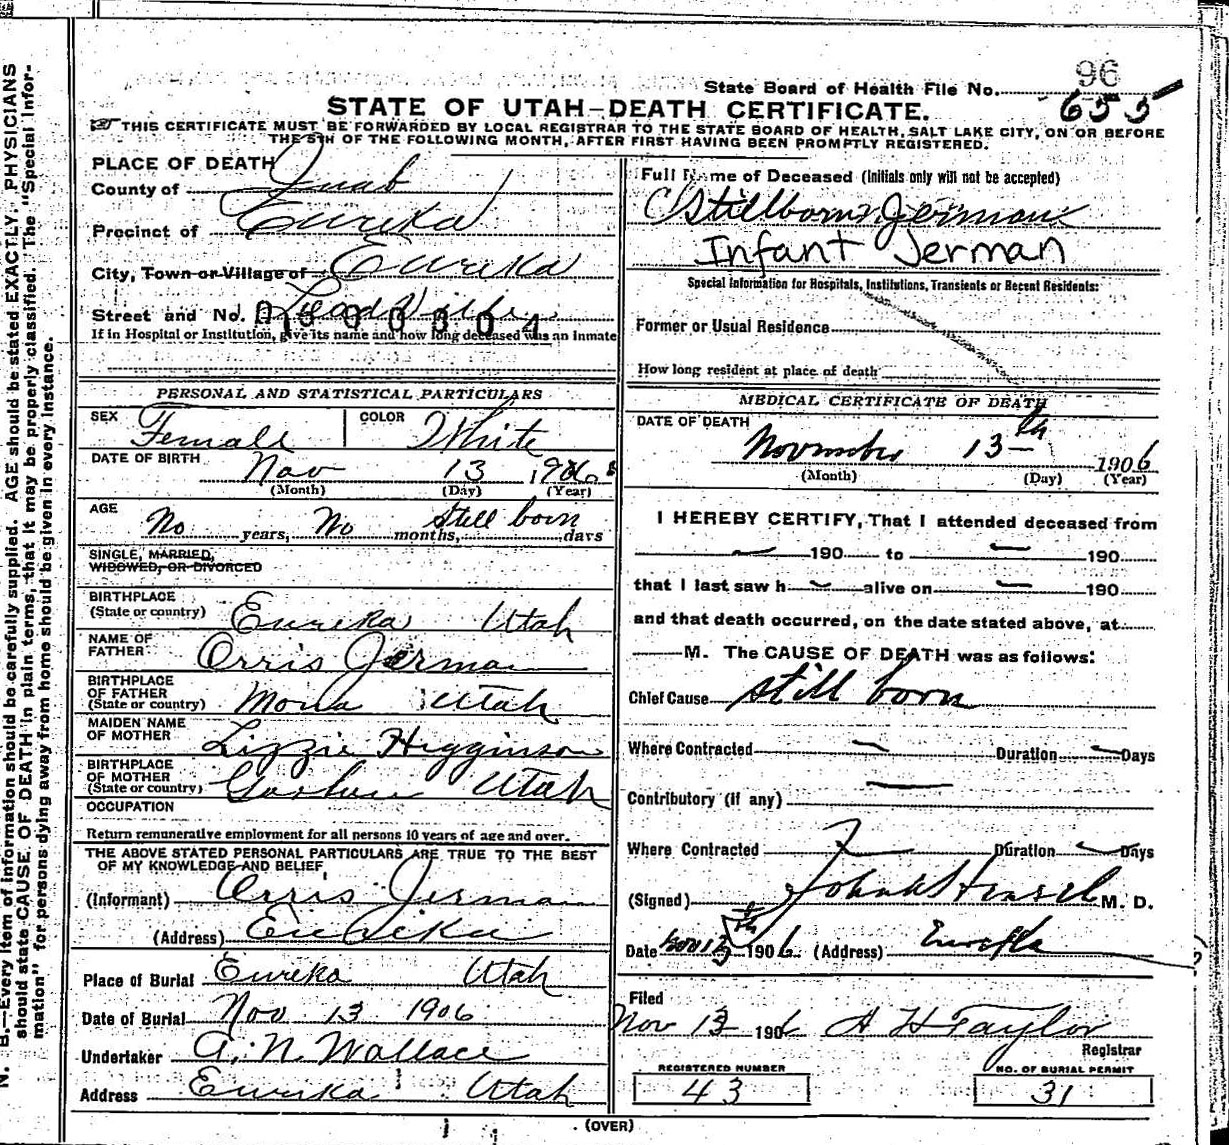 N. B.—Every item of information should be carefully supplied. AGE should be stated EXACTLY. PHYSICIANS
should state CAUSE OF DEATH in plain terms, that it may be properly classified. The "Special Infor-
mation" for persons dying away from home should be given in every instance.
96
State Board of Health File No. 655
STATE OF UTAH—DEATH CERTIFICATE.
THIS CERTIFICATE MUST BE FORWARDED BY LOCAL REGISTRAR TO THE STATE BOARD OF HEALTH, SALT LAKE CITY, ON OR BEFORE
THE 5TH OF THE FOLLOWING MONTH, AFTER FIRST HAVING BEEN PROMPTLY REGISTERED.
PLACE OF DEATH
County of Juab
Precinct of Eureka
City, Town or Village of Eureka
Street and No. Leadville
If in Hospital or Institution, give its name and how long deceased was an Inmate
PERSONAL AND STATISTICAL PARTICULARS
SEX Female COLOR White
DATE OF BIRTH Nov 13 1906
(Month) (Day) (Year)
AGE No years, No months, still born days
SINGLE, MARRIED,
WIDOWED, OR DIVORCED
BIRTHPLACE
(State or country) Eureka Utah
NAME OF
FATHER Orris Jerman
BIRTHPLACE
OF FATHER
(State or country) Mona Utah
MAIDEN NAME
OF MOTHER Lizzie Higginson
BIRTHPLACE
OF MOTHER
(State or country) Goshen Utah
OCCUPATION
Return remunerative employment for all persons 10 years of age and over.
THE ABOVE STATED PERSONAL PARTICULARS ARE TRUE TO THE BEST
OF MY KNOWLEDGE AND BELIEF
(Informant) Orris Jerman
(Address) Eureka
Place of Burial Eureka Utah
Date of Burial Nov 13 1906
Undertaker A. N. Wallace
Address Eureka Utah
Full Name of Deceased (Initials only will not be accepted)
Stillborn Jerman
Infant Jerman
Special Information for Hospitals, Institutions, Transients or Recent Residents:
Former or Usual Residence
How long resident at place of death
MEDICAL CERTIFICATE OF DEATH
DATE OF DEATH
November 13th 1906
(Month) (Day) (Year)
I HEREBY CERTIFY, That I attended deceased from
— 190 to — 190
that I last saw h — alive on — 190
and that death occurred, on the date stated above, at
— M. The CAUSE OF DEATH was as follows:
Chief Cause still born
Where Contracted — Duration — Days
Contributory (if any) —
Where Contracted — Duration — Days
(Signed) M. D.
Date Nov 13 1906 (Address) Eureka
Filed
Nov 13 1906 A H Taylor
Registrar
REGISTERED NUMBER
43
NO. OF BURIAL PERMIT
31
(OVER)